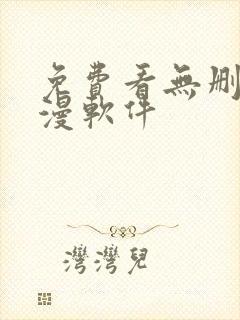 免費看無刪
漫軟件
灣灣兒